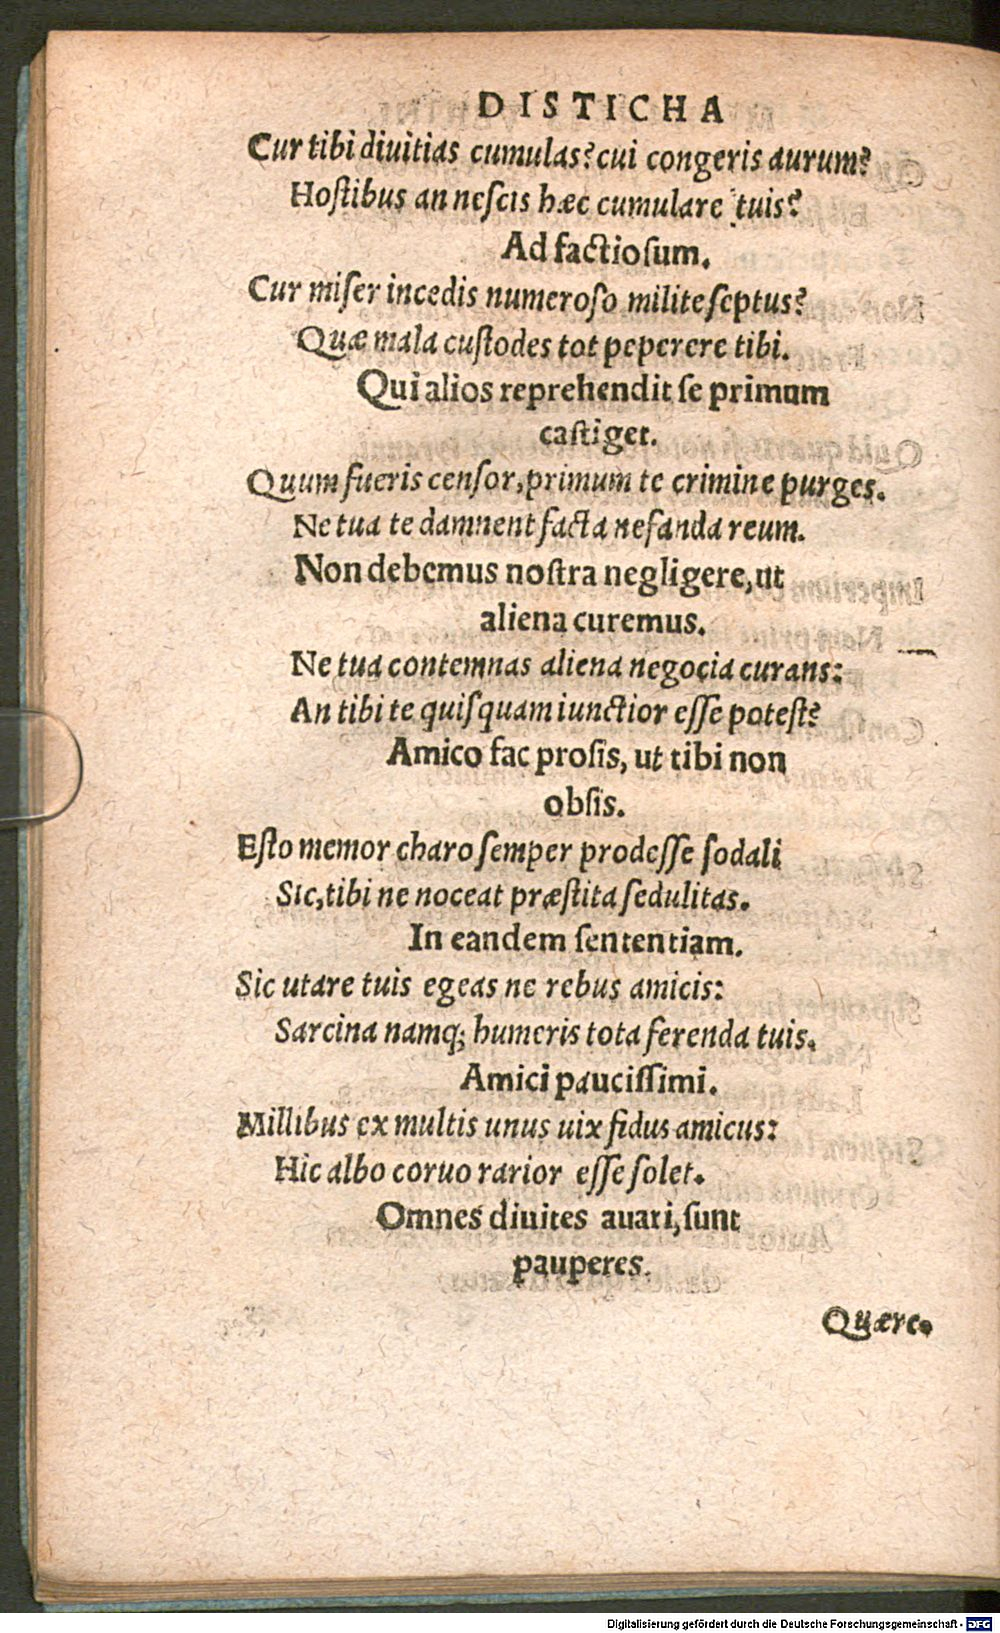 DISTICHA
Cur tibi diuitias cumulas? cui congeris aurum?
Hoſtibus an neſcis hæc cumulare tuis?
Ad factioſum.
Cur miſer incedis numeroſo milite ſeptus?
Quæ mala cuſtodes tot peperere tibi.
Qui alios reprehendit ſe primum
caſtiget.
Quum fueris cenſor, primum te crimine purges.
Ne tua te damnent facta nefanda reum.
Non debemus noſtra negligere, ut
aliena curemus.
Ne tua contemnas aliena negocia curans:
An tibi te quiſquam iunctior eſſe poteſt?
Amico fac proſis, ut tibi non
obſis.
Eſto memor charo ſemper prodeſſe ſodali
Sic, tibi ne noceat præſtita ſedulitas.
In eandem ſententiam.
Sic utare tuis egeas ne rebus amicis:
Sarcina namq; humeris tota ferenda tuis.
Amici pauciſſimi.
Millibus ex multis unus uix fidus amicus:
Hic albo coruo rarior eſſe ſolet.
Omnes diuites auari, ſunt
pauperes.
Quære.
Digitalisierung gefördert durch die Deutsche Forschungsgemeinschaft - DFG